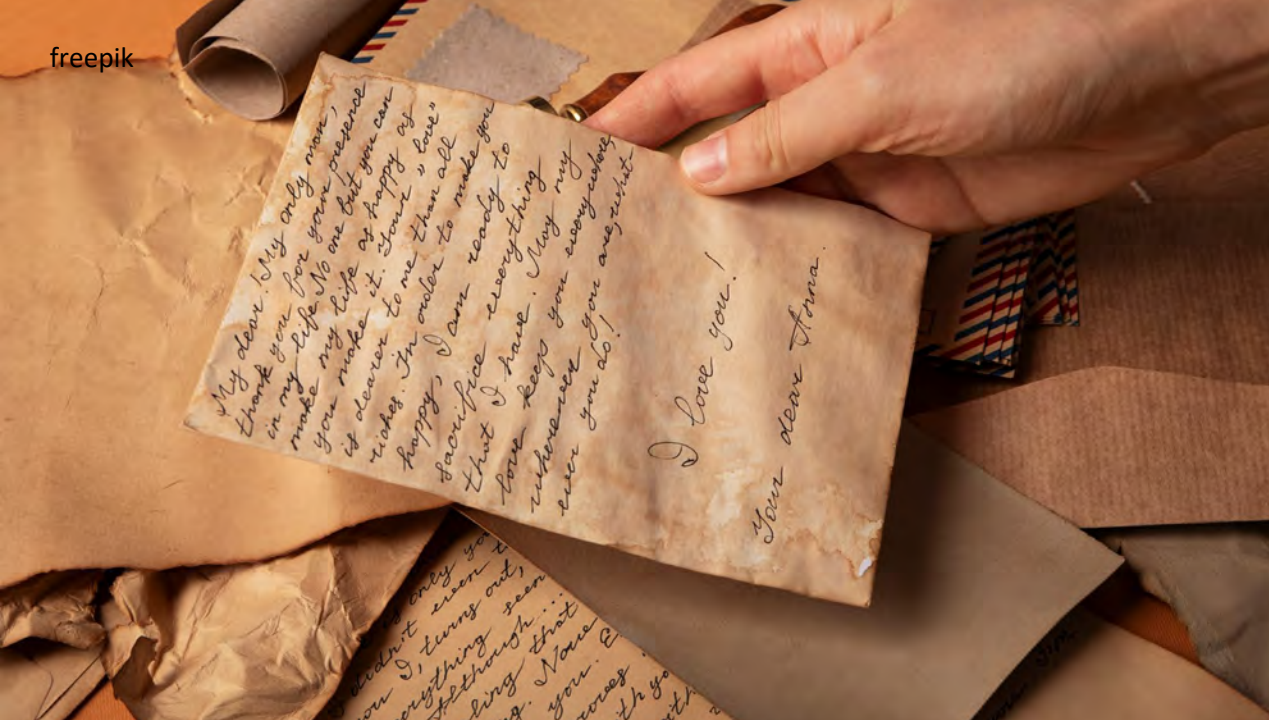 freepik
My dear! My only man,
thank you for your presence
in my life. No one but you can
make my life as happy as
you make it. Your "love"
is dearer to me than all
riches. In order to make you
happy, I am ready to
sacrifice everything
that I have. May my
love keeps you everywhere,
wherever you are, what
ever you do!
I love you!
Your dear Anna.
only you
didn't even
you I, turns out,
everything seen
Although...
ling that
g. None
you. E
roves
th you
with